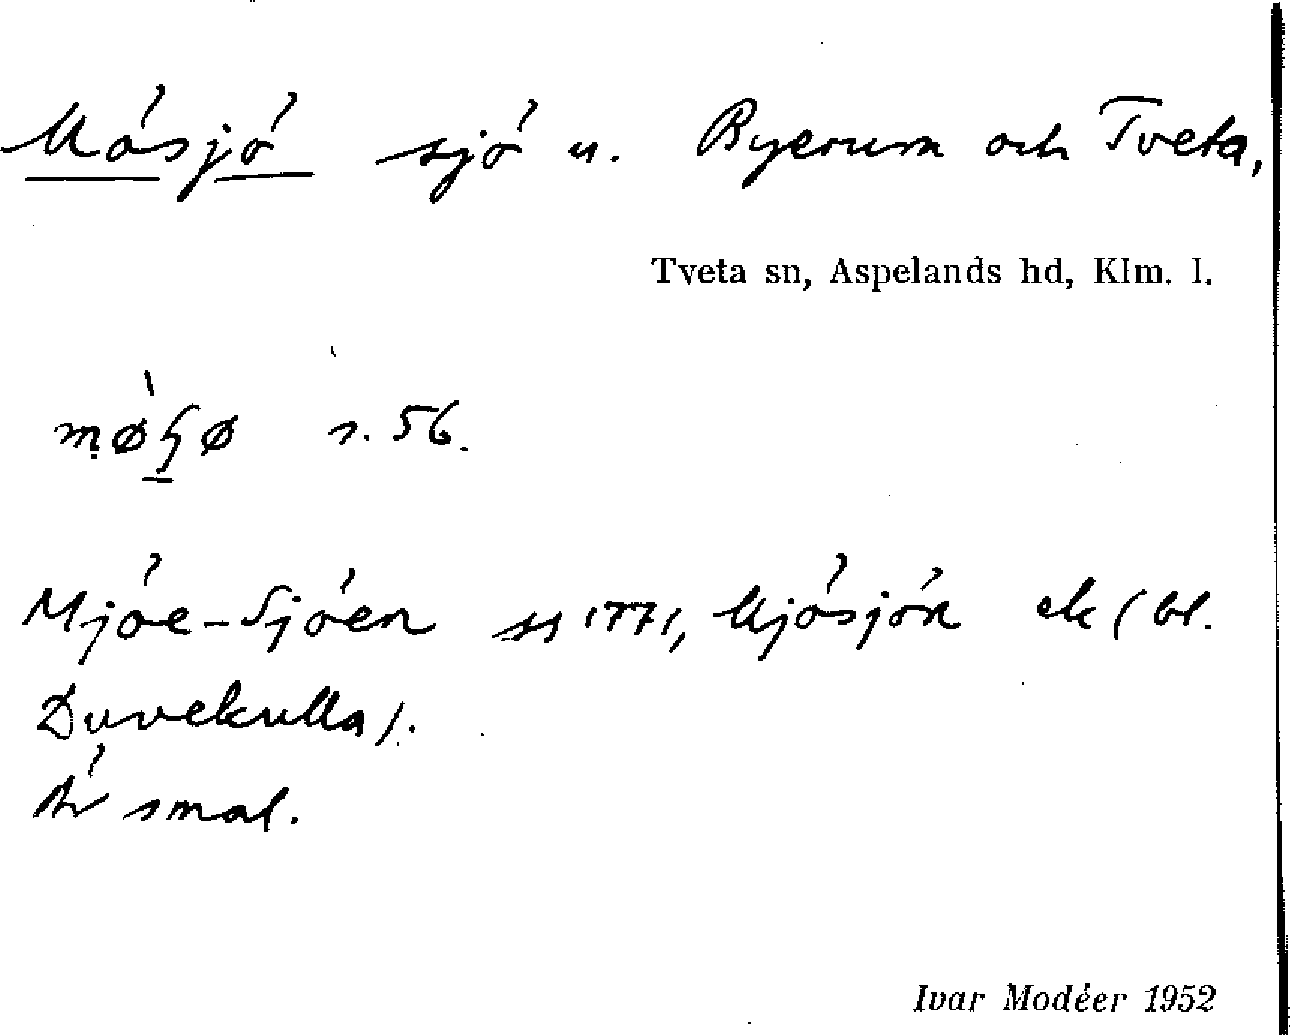 Mösjö sjö u. Byerum och Tveta,
Tveta sn, Aspelands hd, Klm. l.
s. 56.
Mjöe-Sjöen ss 1771, Mjösjön ek (bl.
Duvekulla).
Är smal.
Ivar Modéer 1952